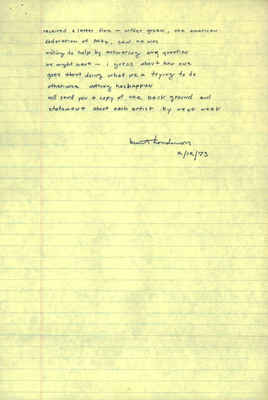 received a letter from — wilder green, the american
federation of arts, said he was
willing to help by answering any question
we might have — i guess about how one
goes about doing what we a trying to do
otherwise nothing has happen
will send you a copy of the back ground and
statement about each artist by next week
2/12/73